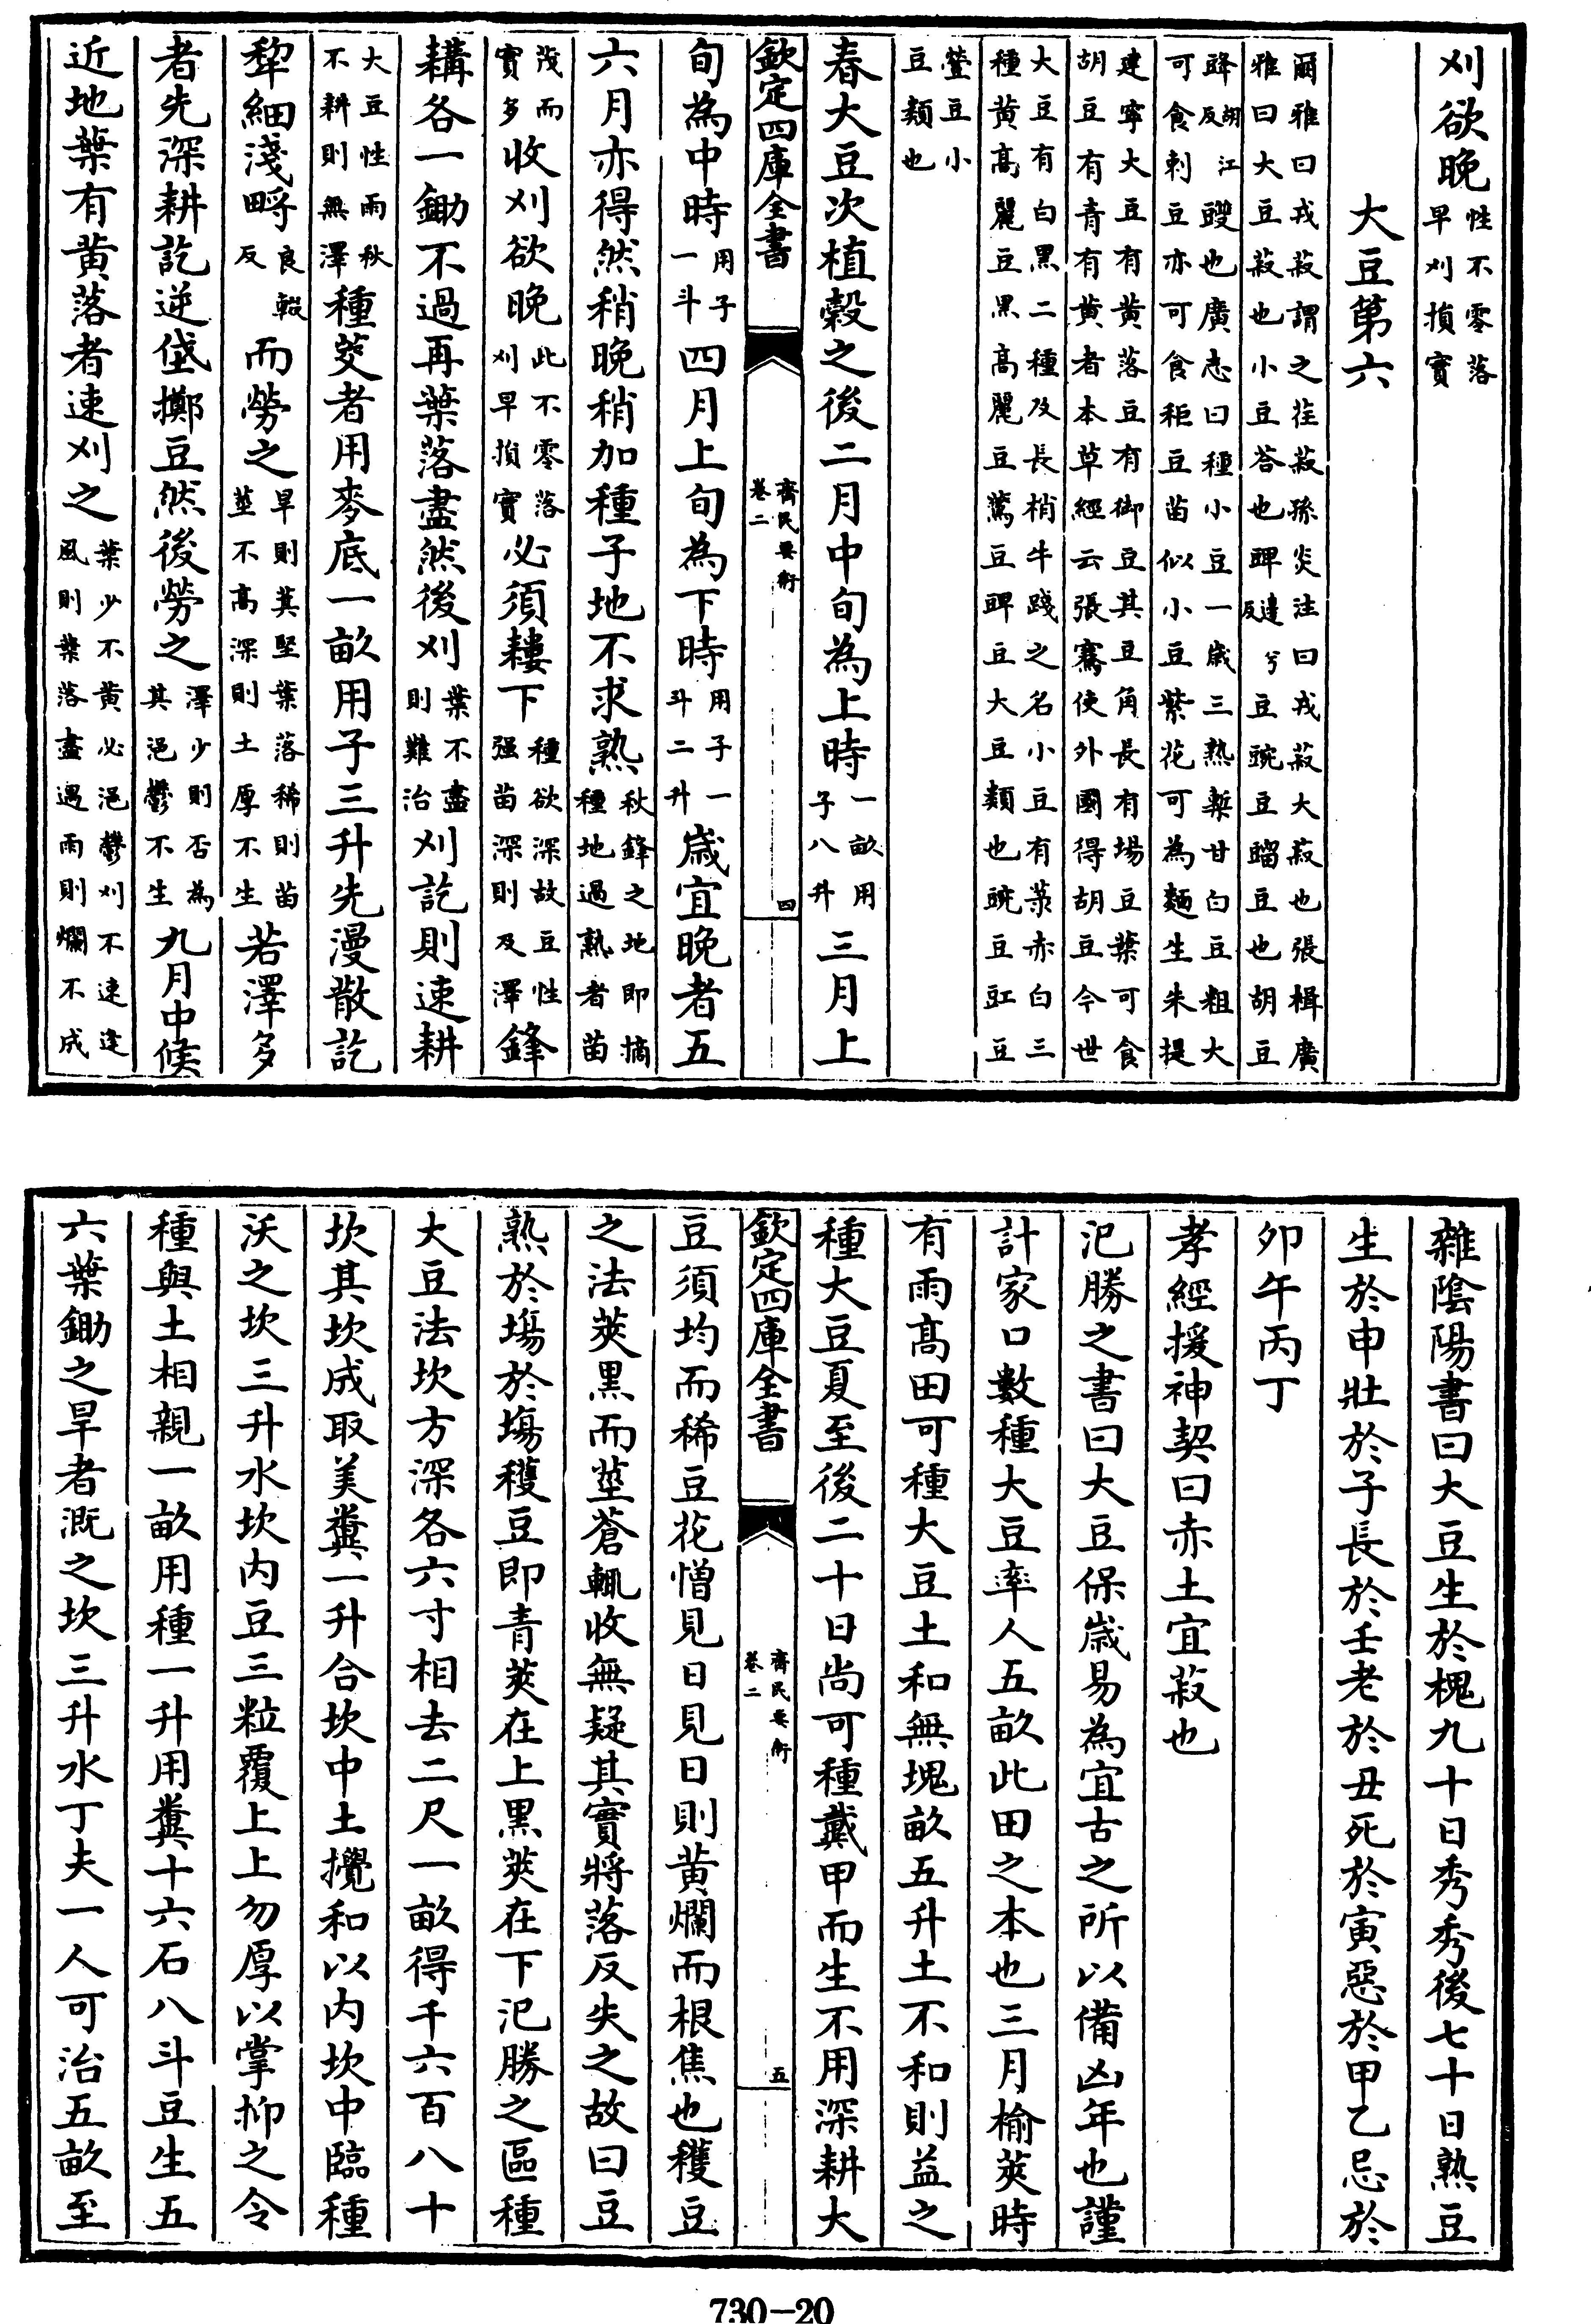 刈欲晚性不零落早刈損實
大豆第六
爾雅曰戎菽謂之荏菽孫炎注曰戎菽大菽也張楫廣
雅曰大豆菽也小豆荅也䜻邊兮反豆豌豆䝁豆也胡豆
䜶胡江反䝄也廣志曰種小豆一歲三熟槧甘白豆粗大
可食刺豆亦可食秬豆苗似小豆紫花可為麵生朱提
建寧大豆有黃落豆有御豆其豆角長有場豆葉可食
胡豆有青有黃者本草經云張騫使外國得胡豆今世
大豆有白黑二種及長梢牛踐之名小豆有菉赤白三
種黃高麗豆黑高麗豆鷰豆䜻豆大豆類也豌豆豇豆
䝁豆小豆類也
春大豆次植穀之後二月中旬為上時一畝用子八升三月上
欽定四庫全書
齊民要術
卷二
四
旬為中時用子一斗四月上旬為下時用子一斗二升歲宜晚者五
六月亦得然稍晚稍加種子地不求熟秋鋒之地即摘種地過熟者苗
茂而實多收刈欲晚此不零落刈早損實必須耬下種欲深故豆性强苗深則及澤鋒
耩各一鋤不過再葉落盡然後刈葉不盡則難治刈訖則速耕
大豆性雨秋不耕則無澤種茭者用麥底一畝用子三升先漫散訖
犂細淺畤良輟反而勞之旱則萁堅葉落稀則苗莖不高深則土厚不生若澤多
者先深耕訖逆垡擲豆然後勞之澤少則否為其浥鬱不生九月中候
近地葉有黃落者速刈之葉少不黃必浥鬱刈不速逢風則葉落盡遇雨則爛不成
雜陰陽書曰大豆生於槐九十日秀秀後七十日熟豆
生於申壯於子長於壬老於丑死於寅惡於甲乙忌於
卯午丙丁
孝經援神契曰赤土宜菽也
氾勝之書曰大豆保歲易為宜古之所以備凶年也謹
計家口數種大豆率人五畝此田之本也三月榆莢時
有雨高田可種大豆土和無塊畝五升土不和則益之
種大豆夏至後二十日尚可種戴甲而生不用深耕大
欽定四庫全書
齊民要術
卷二
五
豆須均而稀豆花憎見日見日則黃爛而根焦也穫豆
之法莢黑而莖蒼輒收無疑其實將落反失之故曰豆
熟於塲於塲穫豆即青莢在上黑莢在下氾勝之區種
大豆法坎方深各六寸相去二尺一畝得千六百八十
坎其坎成取美糞一升合坎中土攪和以內坎中臨種
沃之坎三升水坎內豆三粒覆上上勿厚以掌抑之令
種與土相親一畝用種一升用糞十六石八斗豆生五
六葉鋤之旱者溉之坎三升水丁夫一人可治五畝至
730-20